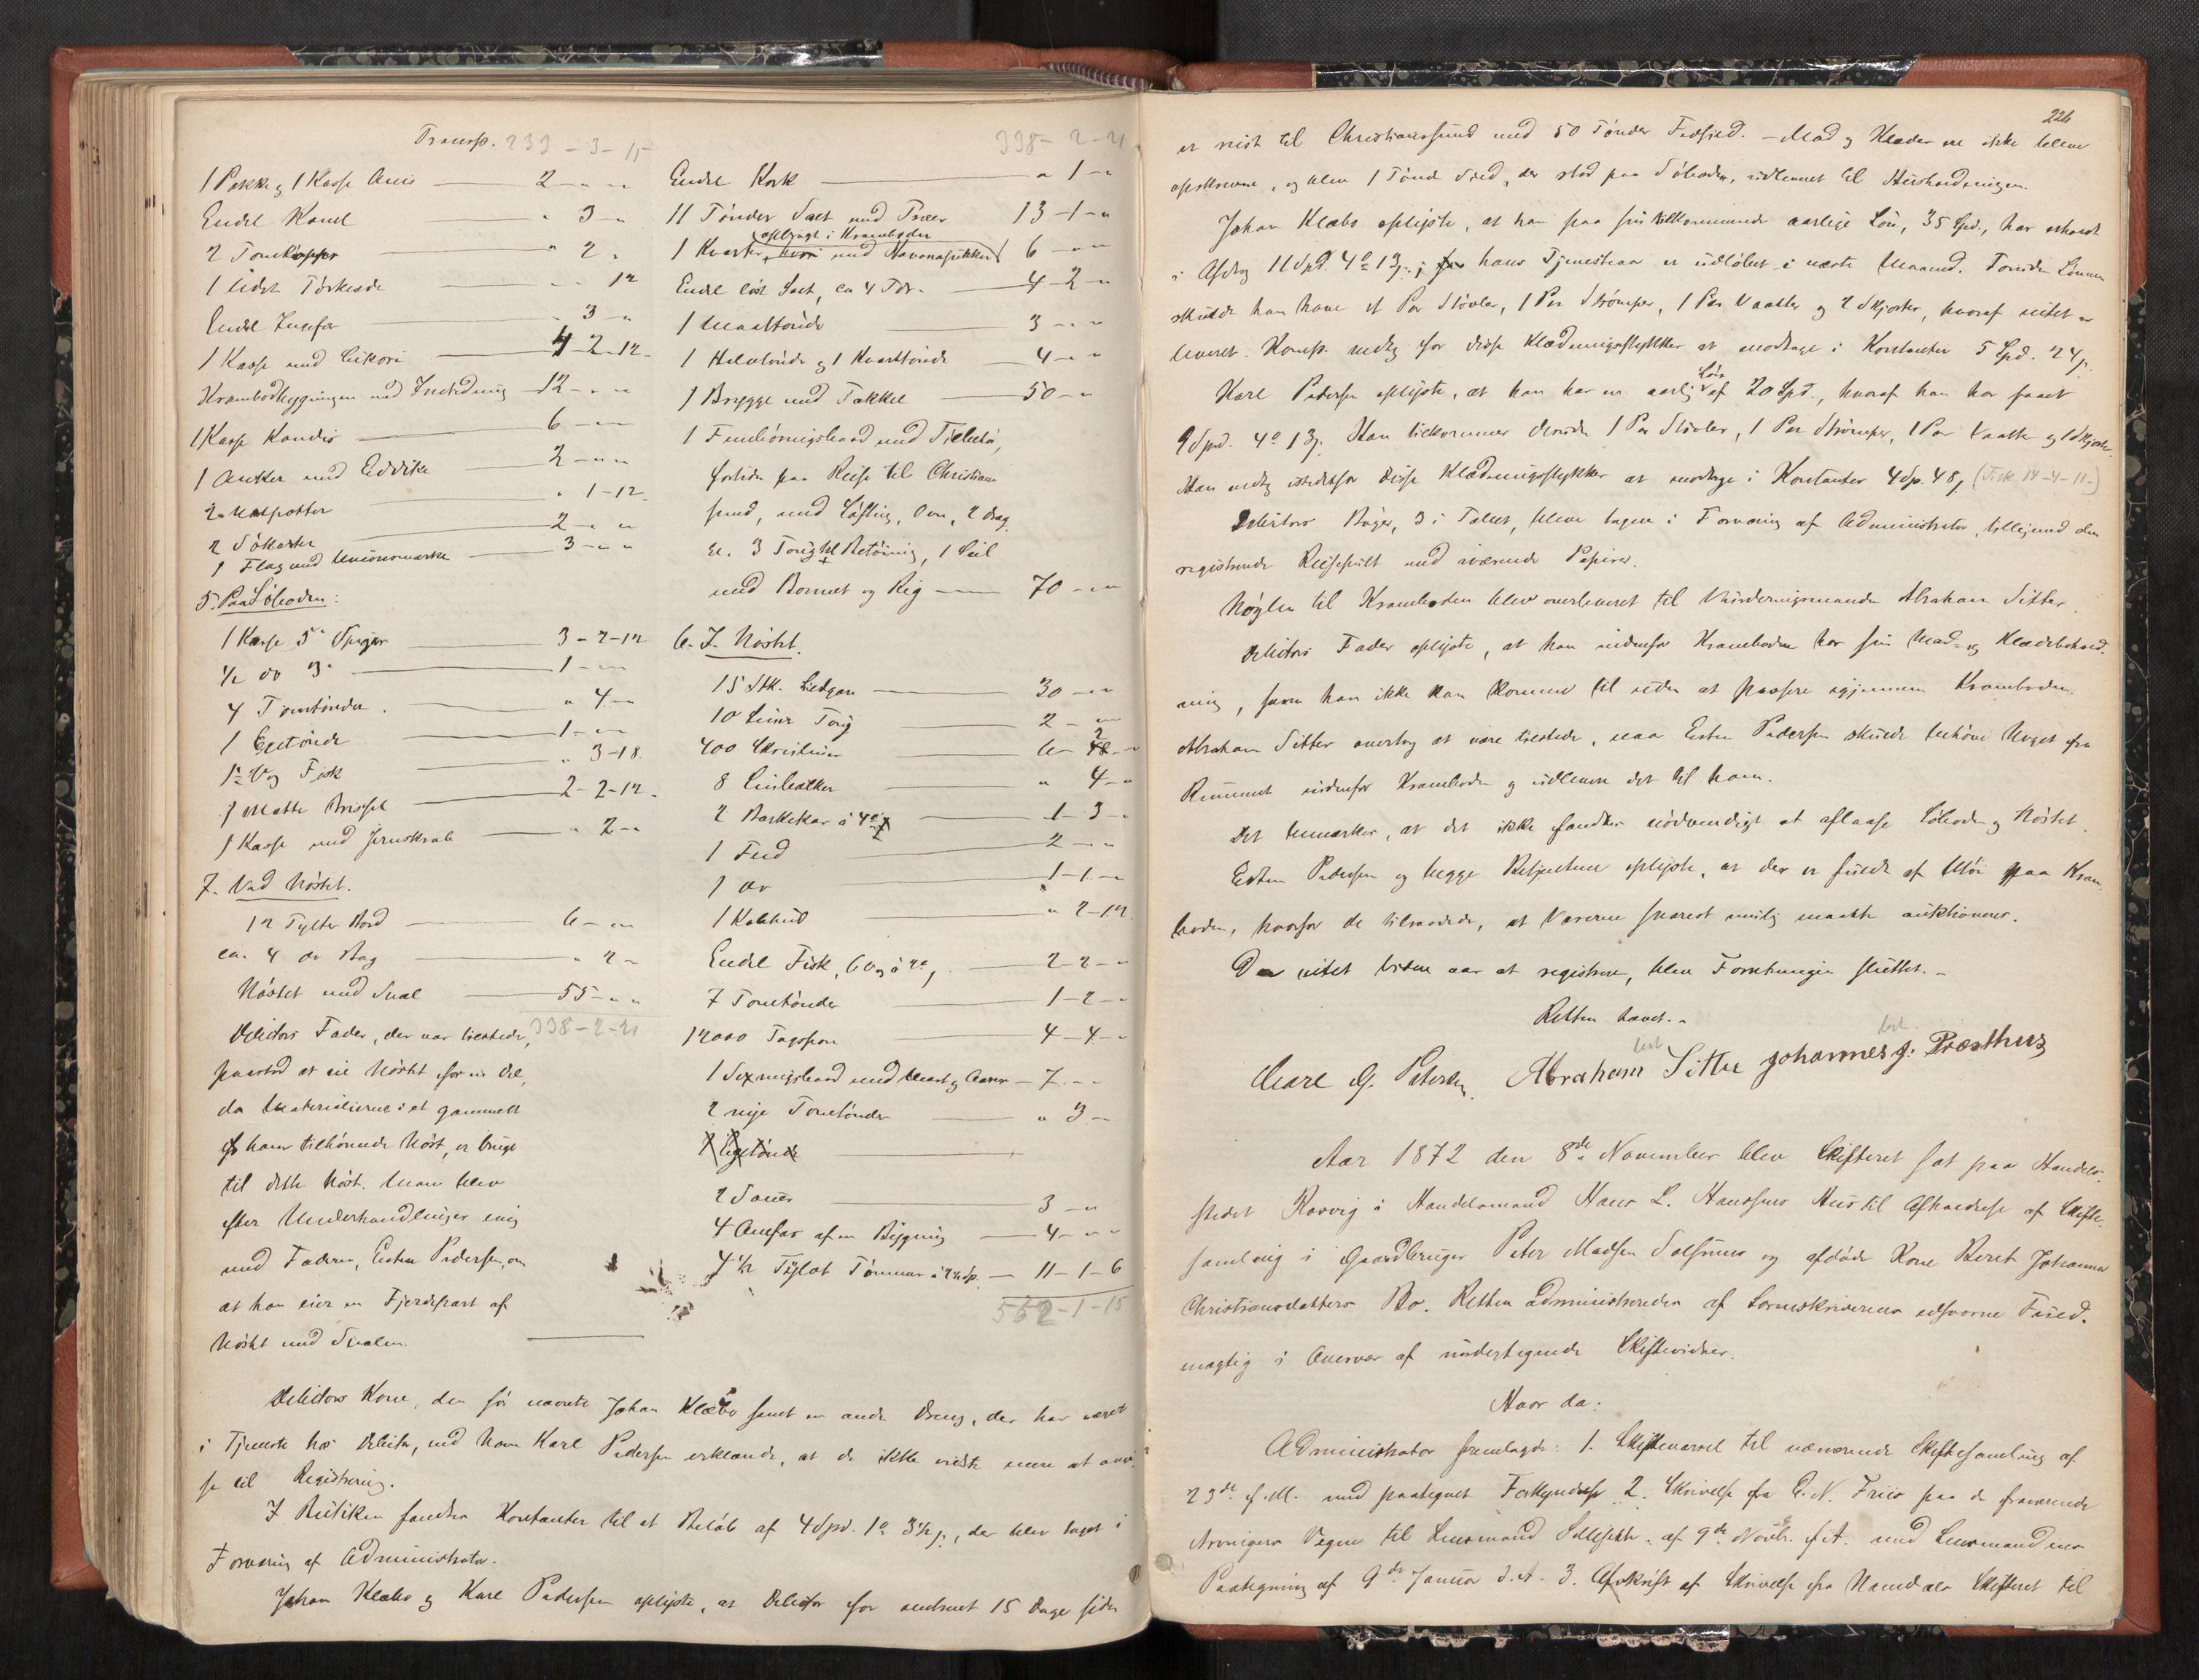 Transp. 233 - 3 - 15
1 Pakke & 1 Kasse Anis 2 - " - "
Endel Kanel " 3 - "
2 Tomkopper " 2 "
1 lidet Tørkede " - " 12
Endel Ingefær " 3 - "
1 Kasse med Cikori 4 2 - 12 -
Krambodbygningen med Indredning 12 - " - "
1 Kasse Kandis 6 - " - "
1 Anker med Eddike 2 - " - "
2 Matpotter " 1 - 12 -
2 Søkarter 2 - " - "
1 Flag med Unionsmærke 3 - " - "
5. Paa Søboden:
1 Kasse 5" Spiger 3 - 2 - 12
1/2 do 3" 1 - " - "
4 Tomtønder " 4 - "
1 Egetønde 1 - " - "
1 1/2 Vog Fisk " 3 - 18
1 Matte Brissel 2 - 2 - 12 -
1 Kasse med Jernskrab " 2 - "
7. Ved Nøstet.
12 Tylter Bord 6 - " - "
ca. 4 do Bag " 2 -
Nøstet med Sval 55 - " - "
338 - 2 - 21
Debitors Fader, der var tilstede,
paastod at eie Nøstet for en Del,
da Materialierne i et gammelt
ham tilhørende Nøst, er brugt
til dette Nøst. Man blev
efter Underhandlinger enig
med Faderen, Esten Pedersen, om
at han eier en Fjerdepart af
Nøstet med Svalen.
338 - 2 - 21
Endel Kork " 1 - "
11 Tønder Salt med Træer 13 - 1 - "
oplagt i Kramboden
1 Kvarter med Havnapakker 6 - " - "
Endel løst Salt, ca 4 Tdr. 4 - 2 - "
1 Maaltønde 3 - " - "
1 Halvtønde & 1 Kvarttønde 4 - " - "
1 Brygge med Takkel 50 - " - "
1 Femböringsbaad med Tilbehør,
fortiden paa Reise til Christian
sund, med Løfting, Ovn, 2 Drag
er. 3 Toug til Betøining, 1 Seil
med Bonnet og Rig 70 - " - "
6. I Nøstet.
15 Stk. Sildgarn 30 - " - "
10 Liner Toug 2 - " - "
400 6 - 2 - "
8 Linbalker " 4 - "
2 Barkekar à 4 1 - 3 - "
1 Fad 2 - " - "
1 do 1 - 1 - "
1 Kalvhud " 2 - 12
Endel Fisk, 6 Vog à 2 2 - 2 - "
7 Tomtønder 1 - 2 - "
12000 Tagspon 4 - 4 - "
1 Sexringsbaad med Mast & Aarer 7 - " - "
2 nye Tomtønder " 3 -
1 Egetønde
2 Sauer 3 - "
4 Omfar af en Bygning 4 - " - "
7 1/2 Tylvt Tømmer à 11 - 1 - 6
562 - 1 - 15
Debitors Kone, den før nævnte Johan Klæbo samt en anden Dreng, der har været
i Tjeneste hos Debitor, ved Navn Karl Pedersen erklærede, at de ikke vidste mere at anvi-
se til Registrering.
I Butiken fandtes Kontanter til et Beløb af 4 Spd. 1 3 1/2 ß, der blev taget i
Forvaring af Administrator.
Johan Klæbo og Karl Pedersen oplyste, at Debitor for omtrent 15 Dage siden
226
er reist til Christianssund med 50 Tønder Fedsild. - Mad & Klæder ere ikke blevne
opskrevne, og blev 1 Tønde Sild, der stod paa Søboden, udleveret til Husholdningen.
Johan Klæbo oplyste, at han paa sin tilkommende aarlige Løn, 35 Spd., har erholdt
i Afdrag 11 Spd. 4 13 ß; hans Tjenesteaar er udløbet i næste Maaned. Foruden Lønnen
skulde han have et Par Støvler, 1 Par Strømper, 1 Par Vaatter og 2 Skjorter, hvoraf intet er
leveret. Komp. vedtog for disse Klædningsstykker at modtage i Kontanter 5 Spd. 24 ß.
Karl Pedersen oplyste, at han har en aarlig Løn af 20 Spd., hvoraf han har faaet
9 Spd. 4 13 ß. Han tilkommer desuden 1 Par Støvler, 1 Par Strømper, 1 Par Vaatter og 1 Skjorte.
Han vedtog istedetfor disse Klædningsstykker at modtage i Kontanter 4 Sp. 48 ß (Tilk. 14 - 4 - 11 -)
Debitors Bøger, 3 i Tallet, bleve tagne i Forvaring af Administrator, tilligemed den
registrerede Reisepult med værende Papirer.
Nøglen til Kramboden blev overleveret til Vurderingsmanden Abraham Sitter.
Debitors Fader oplyste, at han indenfor Kramboden har sin Mad- og Klædebehold-
ning, som han ikke kan komme til uden at passere igjennem Kramboden.
Abraham Sitter overtog at være tilstede, naar Esten Pedersen skulde behøve Noget fra
Rummet indenfor Kramboden og udlevere det til ham.
Det bemærkes, at det ikke fandtes nødvendigt at aflaase Søboden & Nøstet.
Esten Pedersen og begge Betjentene oplyste, at der er fuldt af Møl paa Kram-
boden, hvorfor de tilraadede, at Varerne snarest mulig maatte auktioneres.
Da intet videre var at registrere, blev Forretningen sluttet. -
Retten hævet. -
Carl G. Petersen. Abraham Sitter Johannes J. Præsthus
Aar 1872 den 8de November blev Skifteret sat paa Handels-
stedet Rørvig i Handelsmand Hans L. Hanssens Hus til Afholdelse af Skifte-
samling i Gaardbruger Peter Madsen Solsems og afdøde Kone Beret Johanna
Christiansdatters Bo. Retten administreredes af Sorenskriverens edsvorne Fuld-
mægtig i Overvær af undertegnede Skiftevidner.
Hvor da:
Administrator fremlagde: 1. Skiftevarsel til nærværende Skiftesamling af
23de f. M. med paategnet Forkyndelse 2. Skrivelse fra C. N. Friis paa de fraværende
Arvingers Vegne til Lensmand af 9de Novbr. f. A. med Lensmandens
Paategning af 9de Januar d. A. 3. Afskrift af Skrivelse fra Namdals Skifteret til